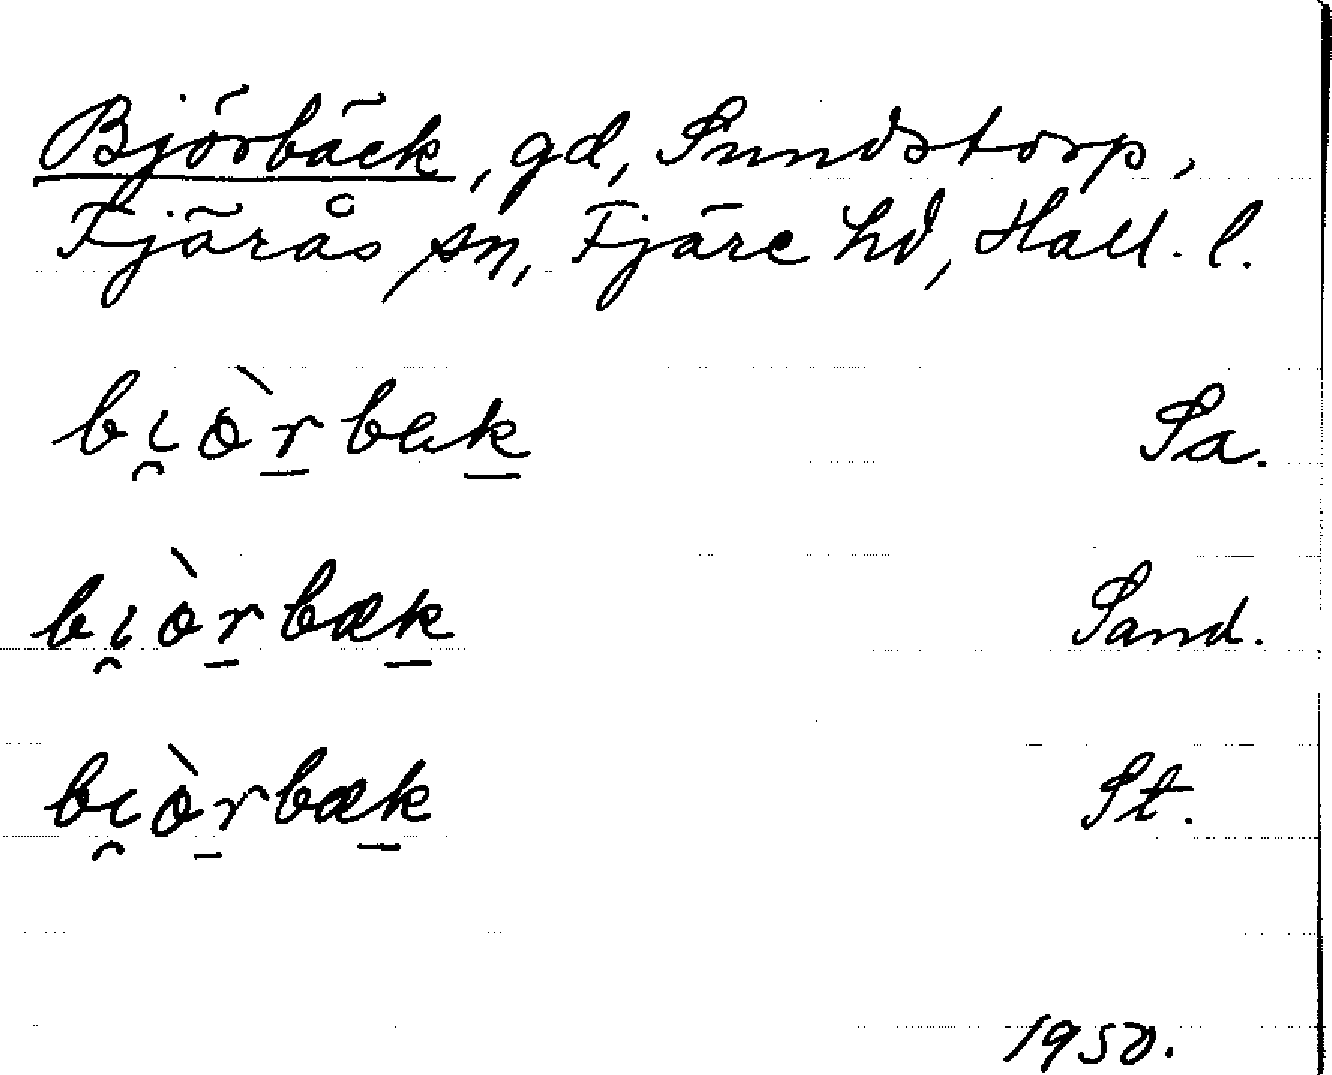 Björbäck, gd, Sundstorp,
Fjärås sn, Fjäre hd, Hall. l.
bi̯òr̲bak̲ Sa.
bi̯òr̲bæk̲ Sand.
bi̯òr̲bæk̲ St.
1950.